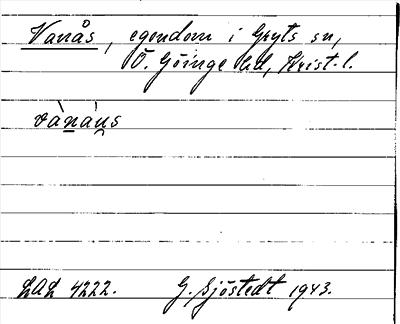 Vanås, egendom i Gryts sn,
Ö. Göinge hd, Krist. l.
vànáu̯s
LAL 4222. G. Sjöstedt 1943.